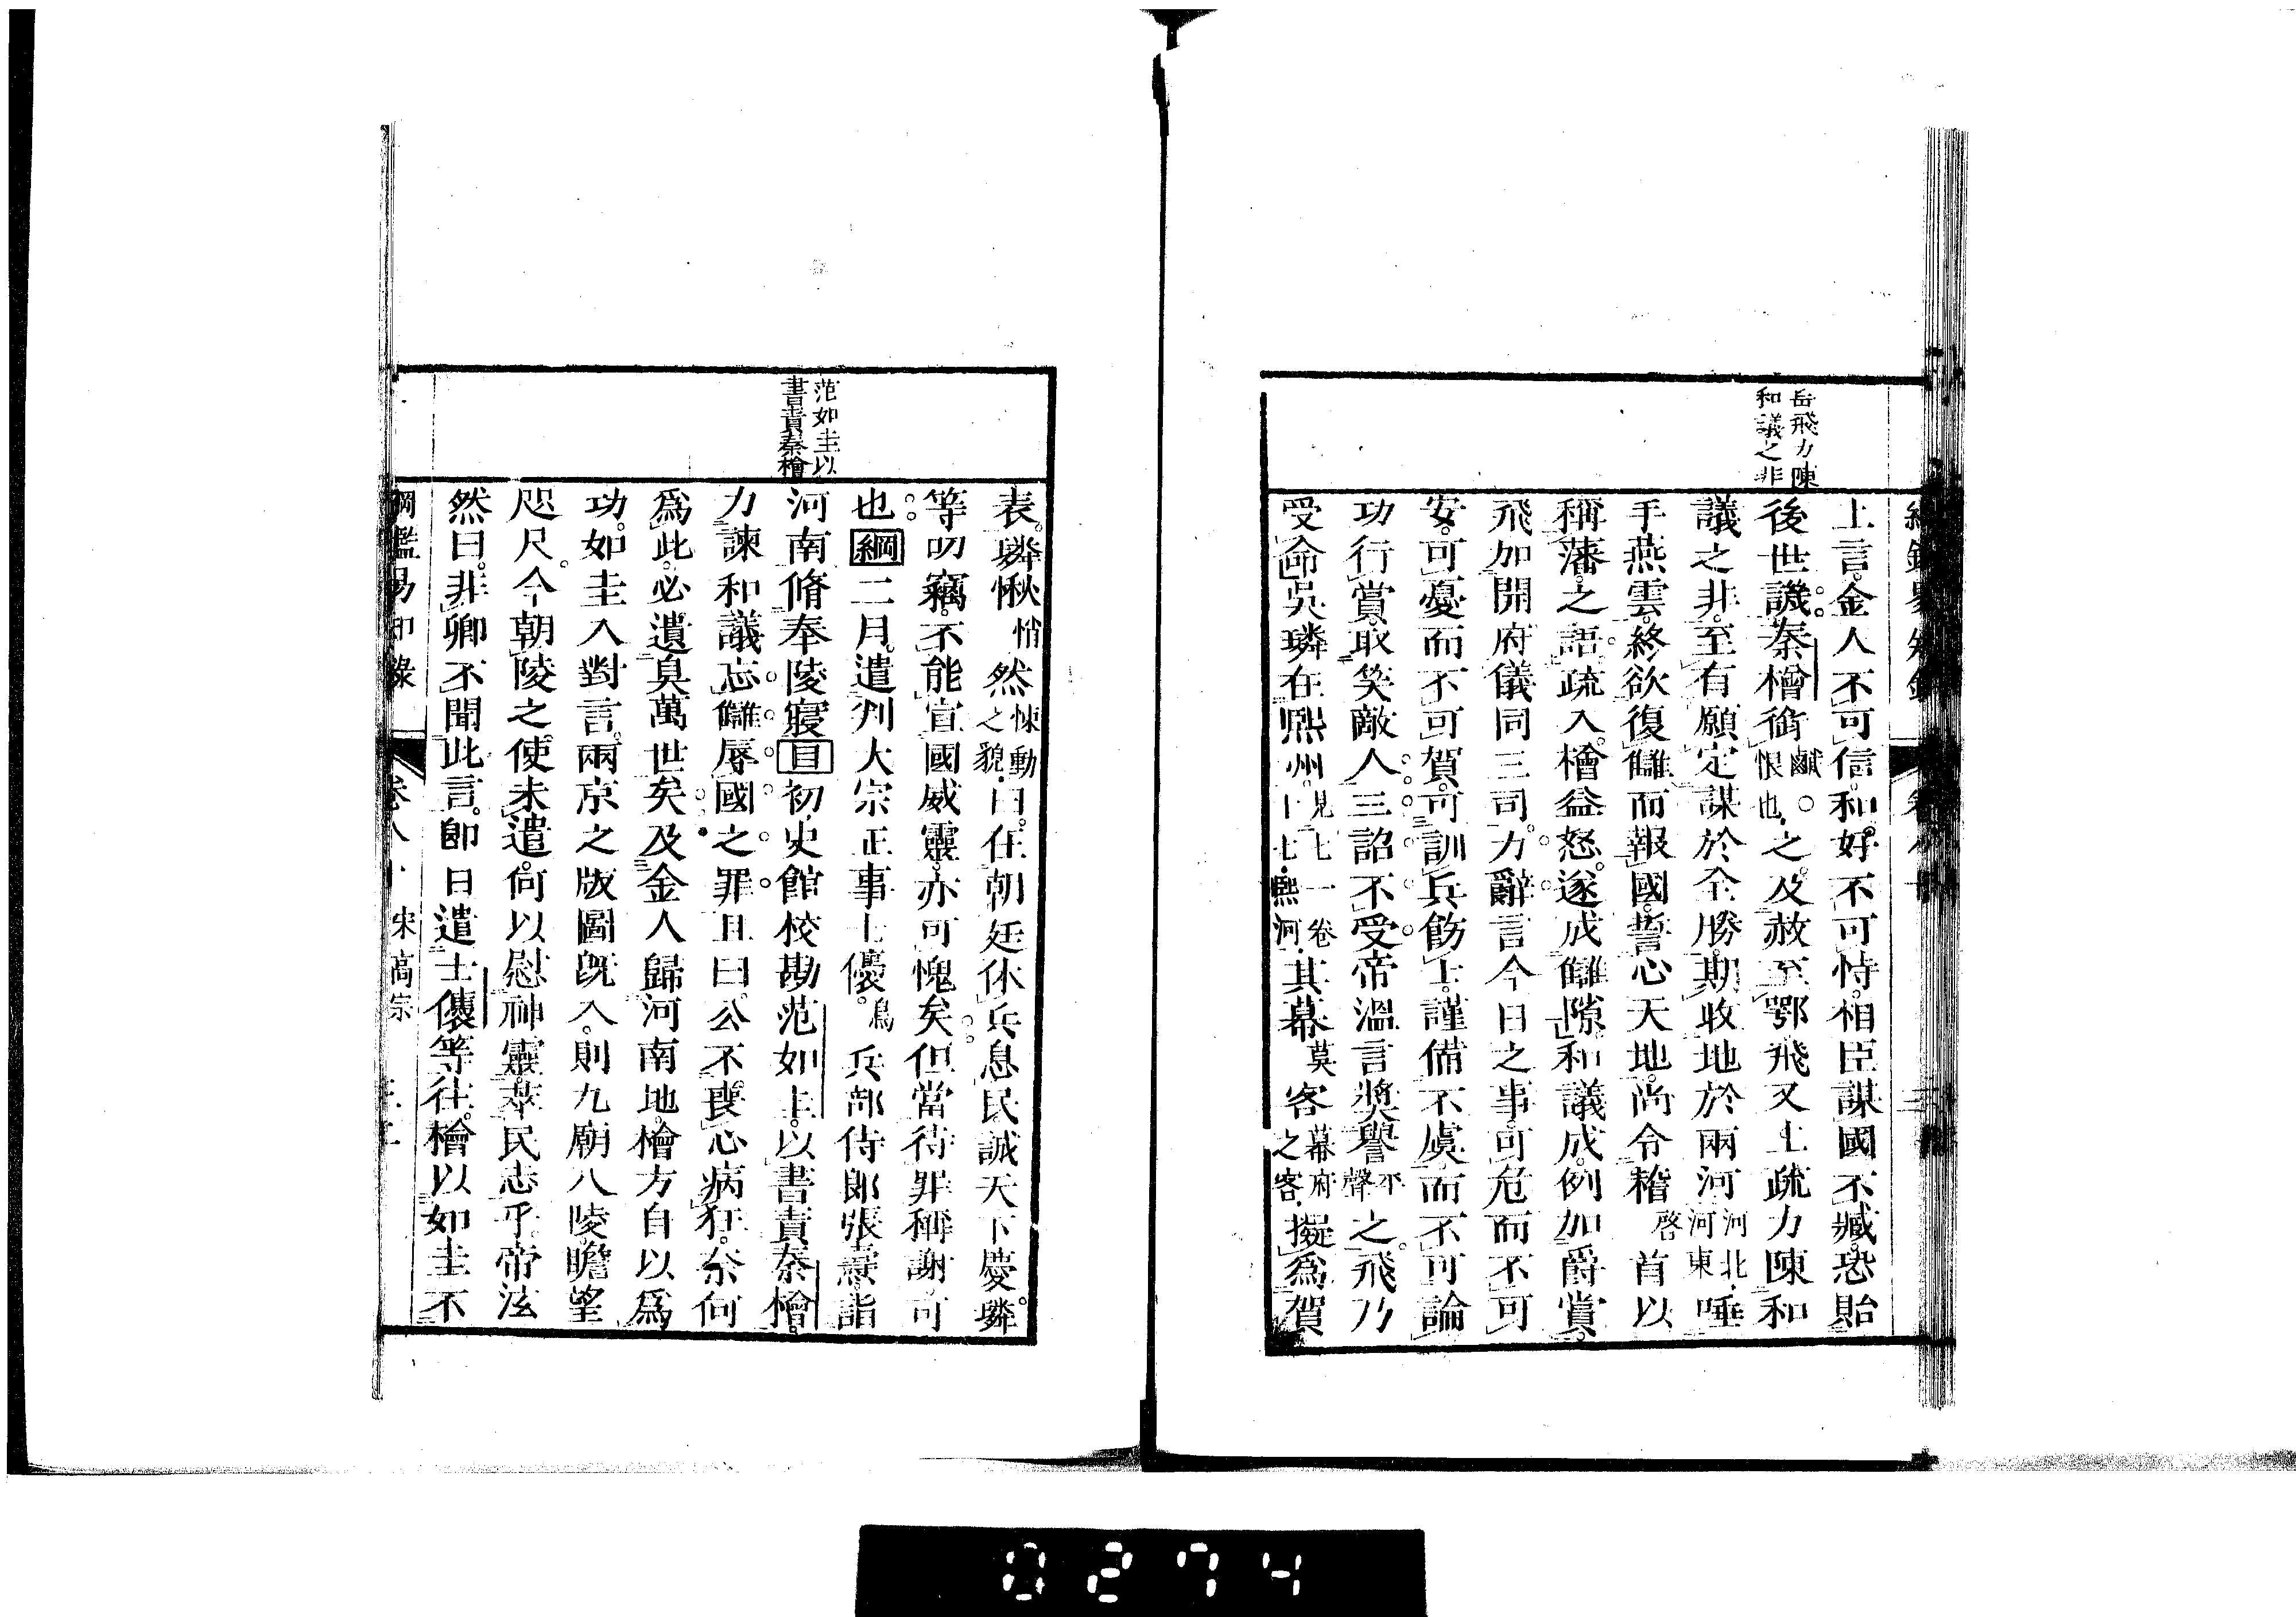 岳飛力陳
和議之非
上言。金人不可信。和好不可恃。相臣謀國不臧。恐貽
後世譏。秦檜銜鹹○恨也。之。及赦至鄂。飛又上疏力陳和
議之非。至有願定謀於全勝。期收地於兩河河北河東唾
手燕雲。終欲復讎而報國。誓心天地。尚令稽啓首以
稱藩之語。疏入。檜益怒。遂成讎隙。和議成。例加爵賞。
飛加開府儀同三司。力辭。言今日之事。可危而不可
安。可憂而不可賀。可訓兵飭士。謹備不虞。而不可論
功行賞。取笑敵人。三詔不受。帝溫言奬譽平聲之。飛乃
受命。吳璘在熙州。見七一卷十七熙河其幕莫客幕府之客擬爲賀
范如圭以
書責秦檜
表。璘愀悄然悚動之貌曰。在朝廷休兵息民。誠天下慶。璘
等叨竊。不能宣國威靈。亦可愧矣。但當待罪稱謝可
也。綱二月。遣判大宗正事士㒟。鳥兵部侍郎張燾詣
河南脩奉陵寢。目初。史館校勘范如圭。以書責秦檜。
力諫和議。忘讎辱國之罪。且曰。公不喪心病狂。奈何
爲此。必遺臭萬世矣。及金人歸河南地。檜方自以爲
功。如圭入對言。兩京之版圖旣入。則九廟八陵。瞻望
咫尺。今朝陵之使未遣。何以慰神靈。萃民志乎。帝泫
然曰。非卿不聞此言。卽日遣士㒟等往。檜以如圭不
綱鑑易知錄 卷八十 宋高宗